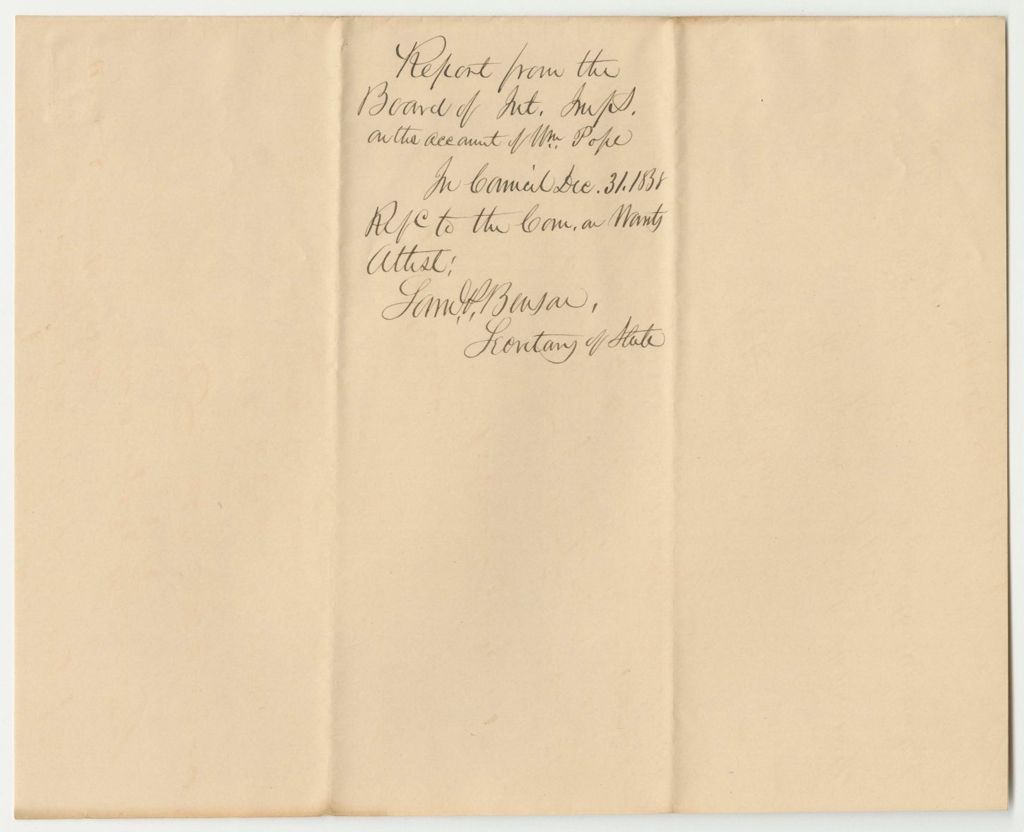 Report from the
Board of Int. Imps.
on the account of Wm. Pope
In Council Dec. 31. 1838
Refd to the Com. on Warrants
Attest:
Saml. P. Benson,
Secretary of State